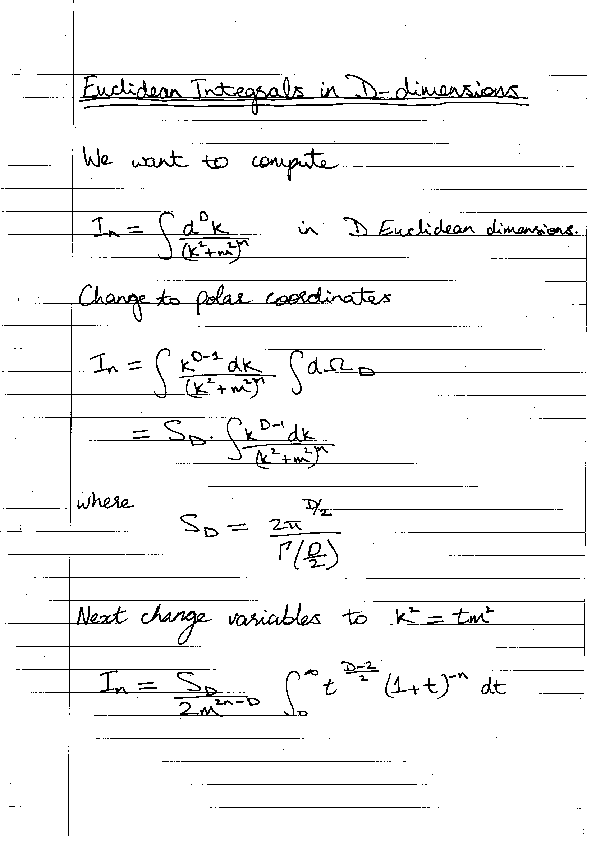 Euclidean Integrals in D-dimensions
We want to compute
Iₙ = ∫ dᴰk / (k²+m²)ⁿ in D Euclidean dimensions.
Change to polar coordinates
Iₙ = ∫ k^(D-1) dk / (k²+m²)ⁿ ∫ dΩ_D
= S_D · ∫ k^(D-1) dk / (k²+m²)ⁿ
where
S_D = 2π^(D/2) / Γ(D/2)
Next change variables to k² = tm²
Iₙ = S_D / 2m^(2n-D) ∫₀^∞ t^((D-2)/2) (1+t)^(-n) dt